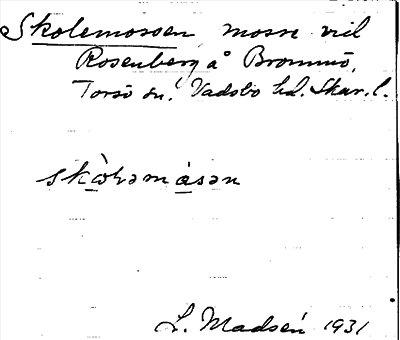 Skolemossen mosse vid
Rosenberg å Brommö,
Torsö sn. Vadsbo hd. Skar. l.
skòləmåsən
L. Madsén 1931